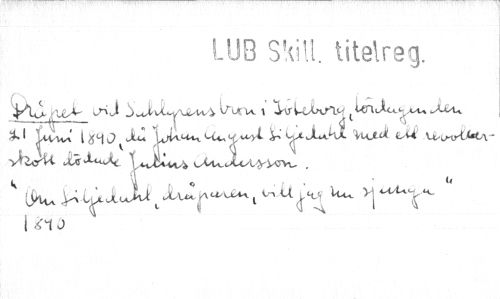 LUB Skill. titelreg.
Dråpet vid Sahlgrensbron i Göteborg, lördagen den
21 Juni 1890, då Johan August Liljedahl med ett revolver-
skott dödade Julius Andersson.
"Om Liljedahl, dråparen, vill jag nu sjunga"
1890